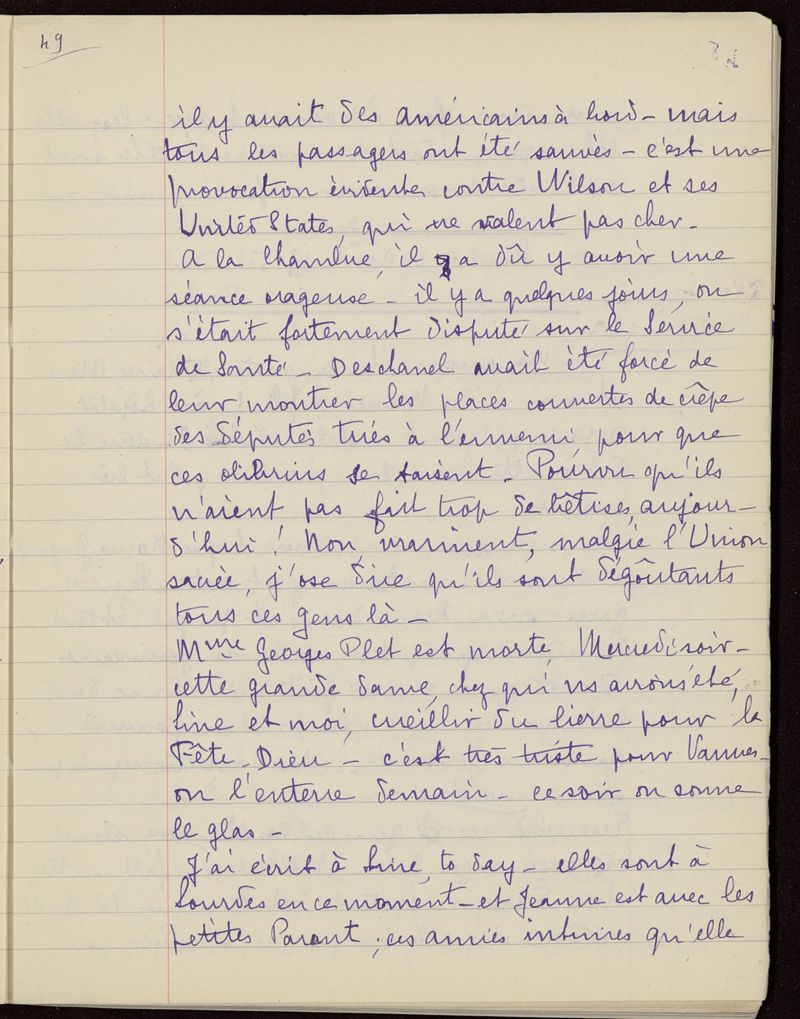 49
il y avait des américains à bord - mais
tous les passagers ont été sauvés - c'est une
provocation évidente contre Wilson et ses
United States, qui ne valent pas cher.
A la Chambre, il y a dû y avoir une
séance orageuse - il y a quelques jours, on
s'était fortement disputé sur le Service
de Santé - Deschanel avait été forcé de
leur montrer les places couvertes de crêpe
des Députés tués à l'ennemi, pour que
ces olibrius se taisent. Pourvu qu'ils
n'aient pas fait trop de bêtises, aujour-
d'hui ! Non, vraiment, malgré l'Union
sacrée, j'ose dire qu'ils sont dégoûtants
tous ces gens là -
Mme Georges Plet est morte, Mercredi soir -
cette grande dame, chez qui ns avions été,
Line et moi, cueillir du lierre pour la
Fête-Dieu - c'est très triste pour Vannes -
on l'enterre demain - ce soir on sonne
le glas -
J'ai écrit à Line, to day - elles sont à
Lourdes en ce moment - et Jeanne est avec les
petites Parant ; ces amies intimes qu'elle